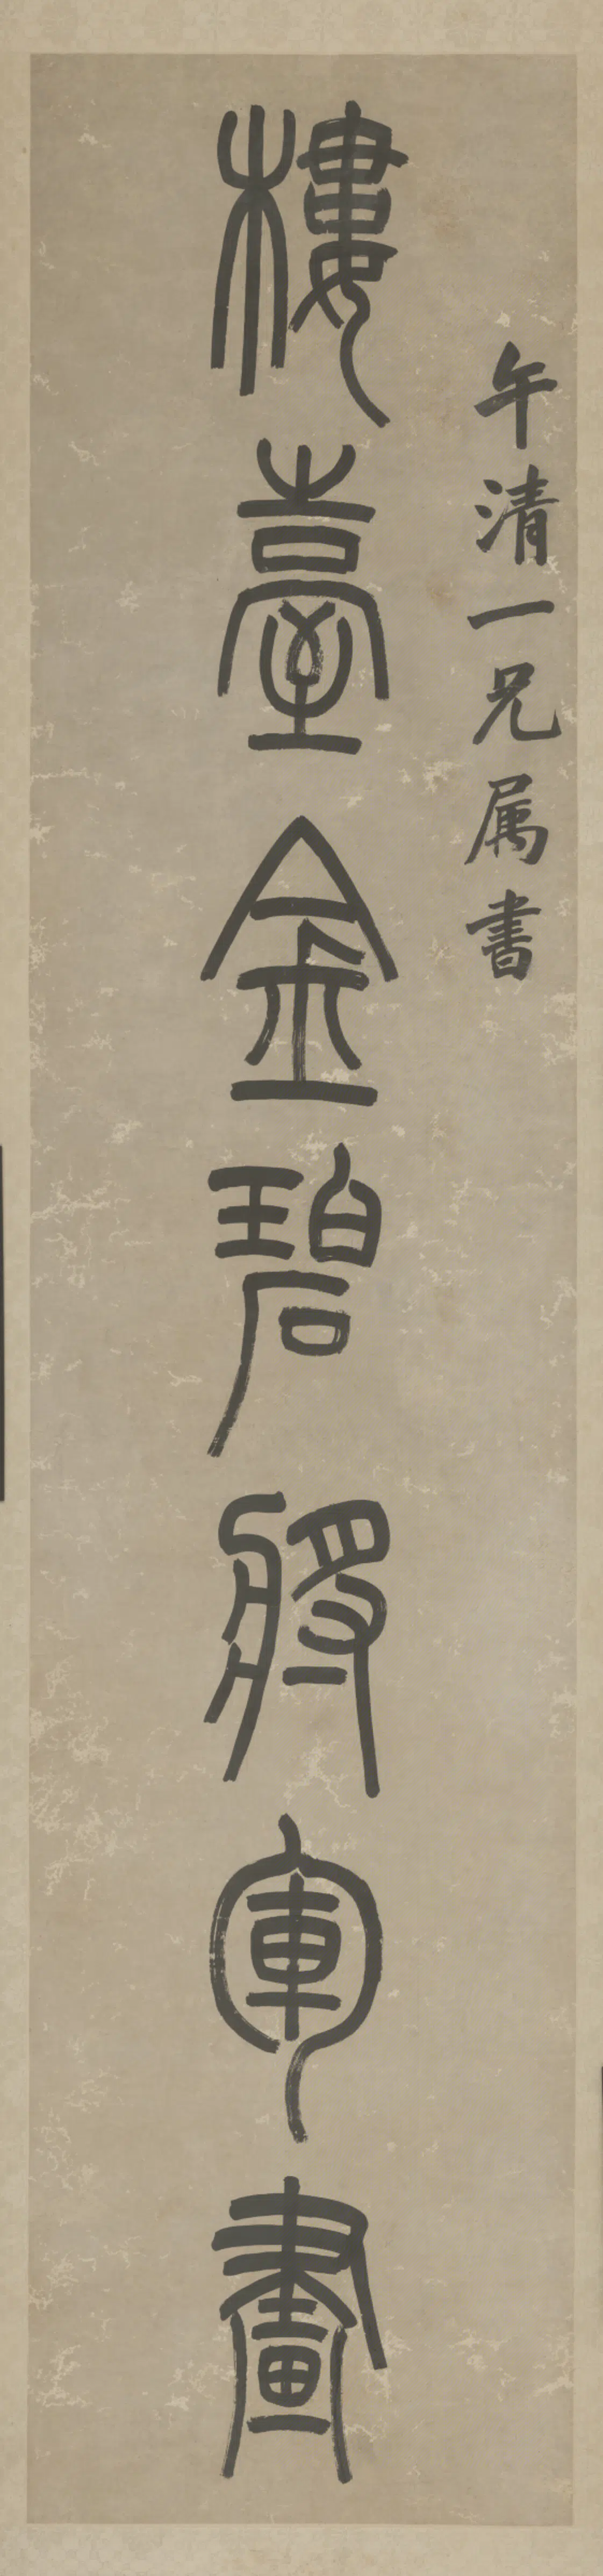 午清一兄属書
樓臺金碧將軍畫